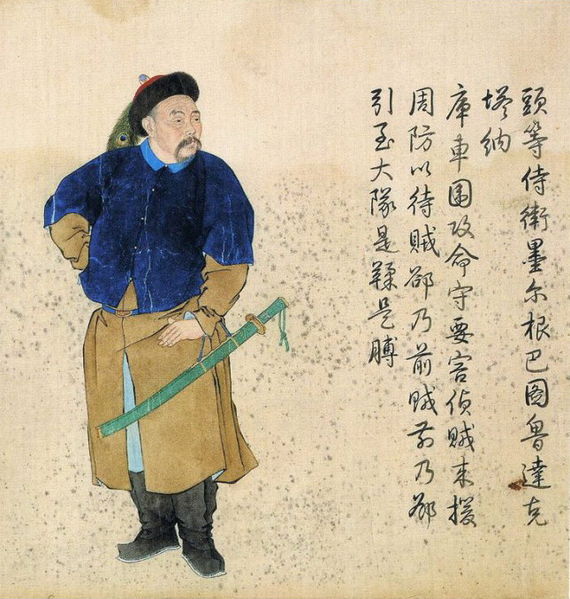 頭等侍衛墨尔根巴圖魯達克
塔納
庫車圍攻命守要害偵賊來援
周防以待賊郤乃前賊前乃郤
引至大隊是鞣是膊